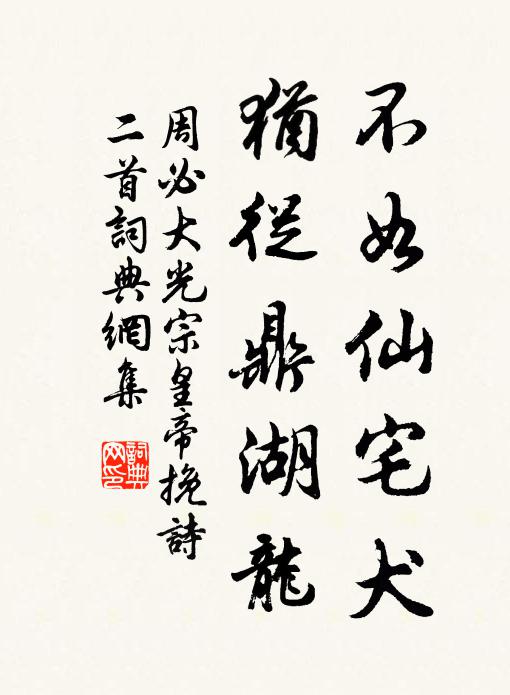 不如仙宅犬
猶從鼎湖龍
周必大光宗皇帝挽詩
二首詞典網集
詞典
网印